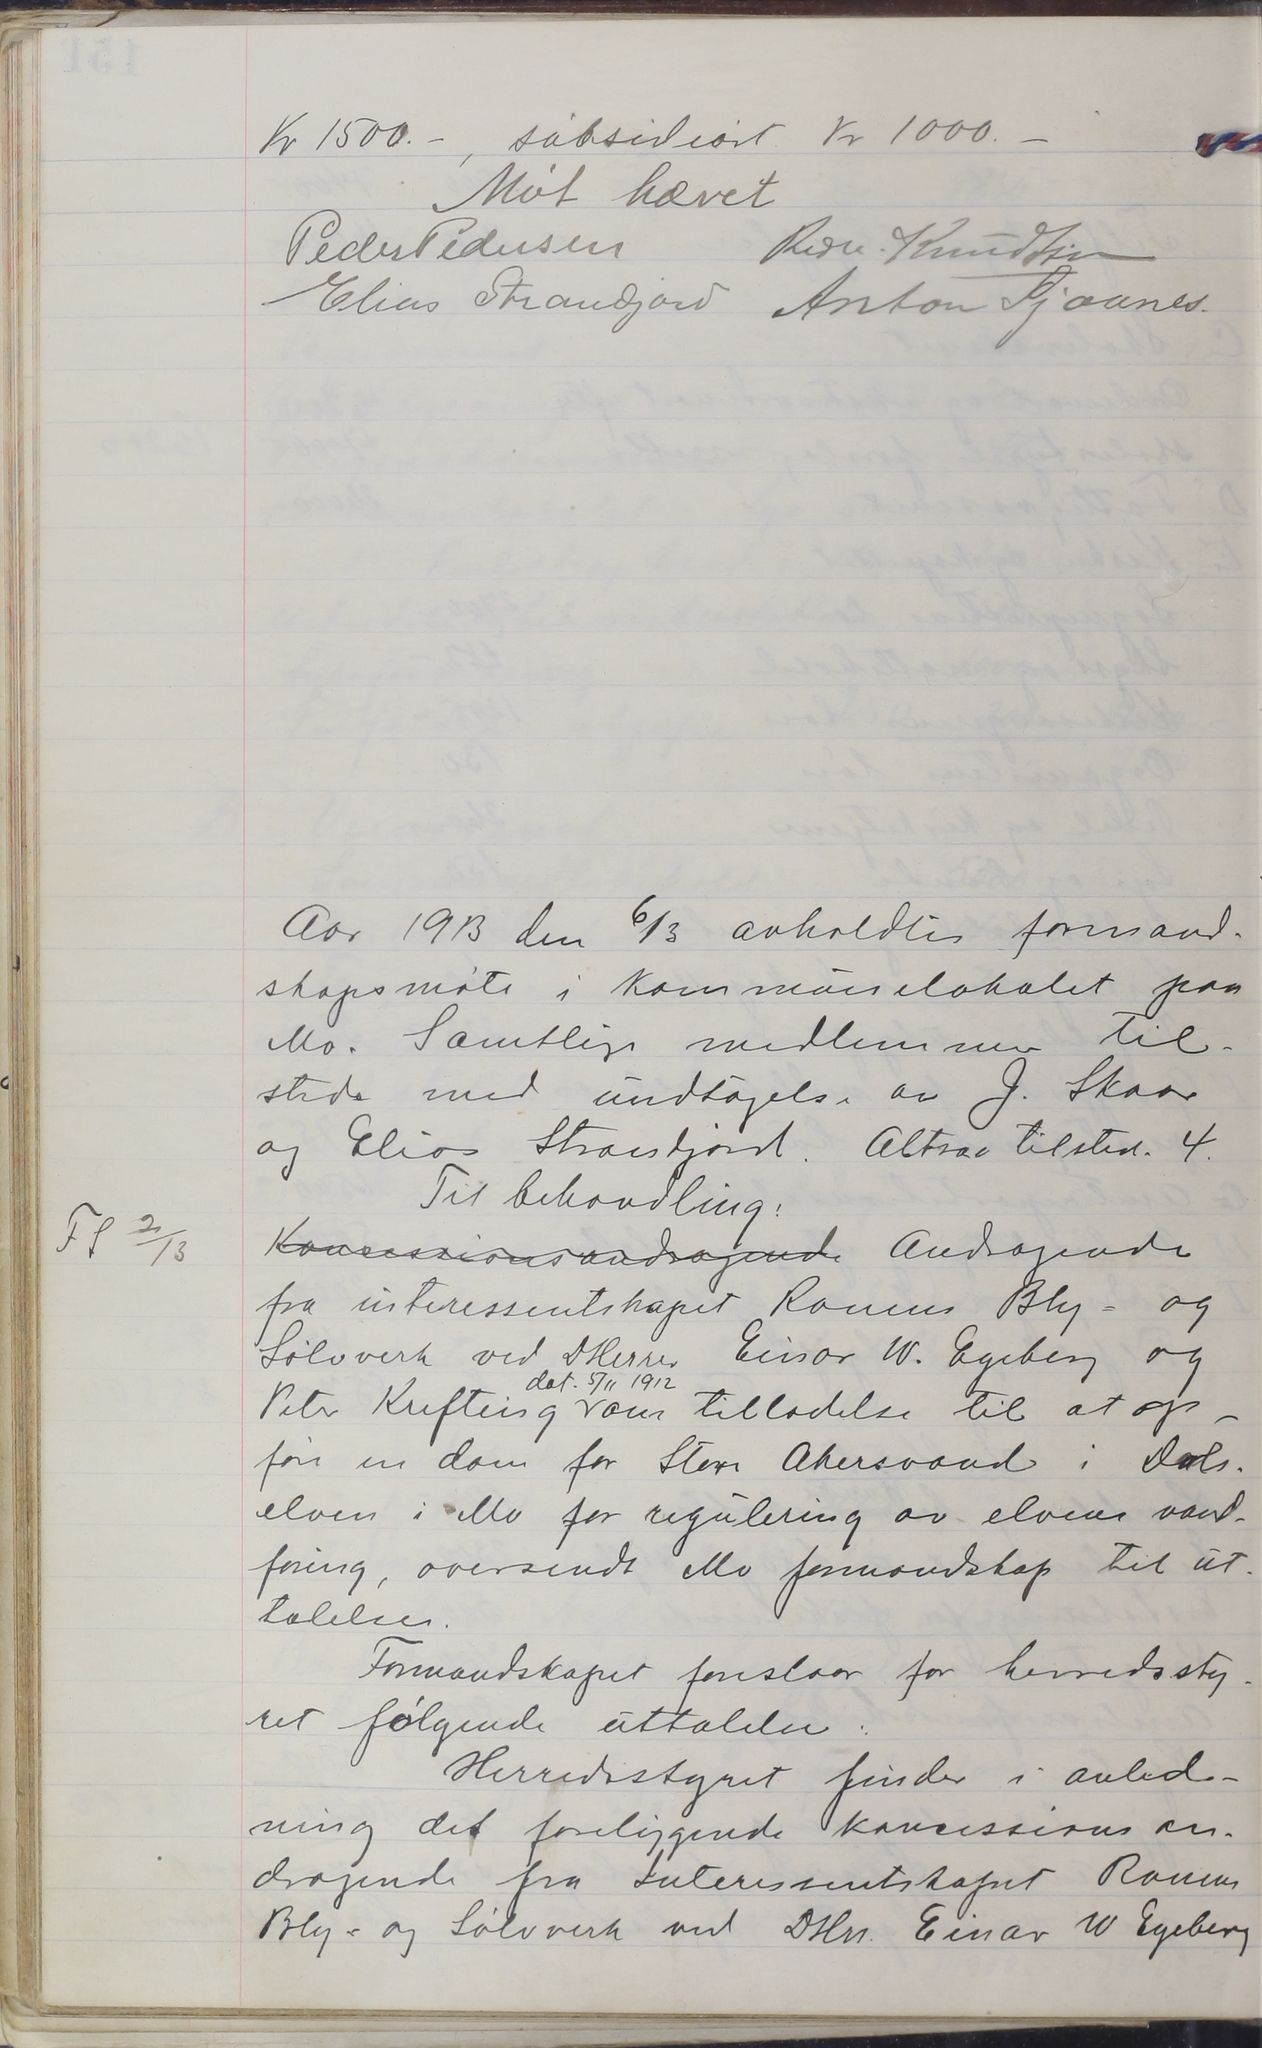 Kr 1500.-, subsidiært Kr 1000.-
Møt hævet
Peder Pedersen Knudtsen
Elias Strandjord Anton Fjaanes.
Aar 1913 den 6/3 avholdtes formand-
skapsmøte i kommunelokalet paa
Mo. Samtlige medlemmer til-
stede med undtagelse av J. Skaar
og Elias Strandjord. Altsaa tilsted. 4.
Til behandling:
FS 2/13
Koncessionsandragende Andragende
fra interessentskapet Ranens Bly- og
Sølvverk ved DHerrer Einar W. Egeberg og
dat. 5/11 1912
Peter Krefting v om tilladelse til at op-
føre en dam for Store Akersvand i Dals-
elven i Mo for regulering av elvens vand-
føring, oversendt Mo formandskap til ut-
talelse.
Formandskapet foreslaar for herredssty-
ret følgende uttalelse:
Herredsstyret finder i anled-
ning det foreliggende koncessionsan-
dragende fra Interessentskapet Ranens
Bly- og Sølvverk ved DHrr. Einar W Egeberg